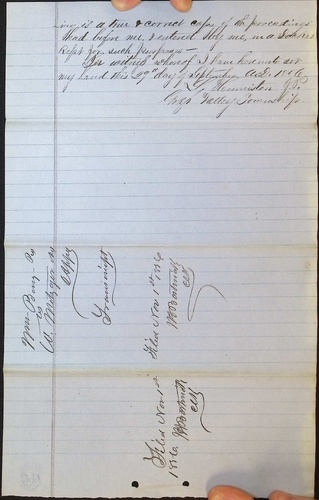 ing is a true & correct copy of the proceedings
had before me, entered by me, in a Docket
Kept for such purposes —
In witness whereof I have hereunto set
my hand this 29th day of September A.D. 1856
J.P.
Valley Township
Wm Berry
vs
Transcript
Filed Nov 1st 1856
Clk
Filed Nov 1st
1856
Clk